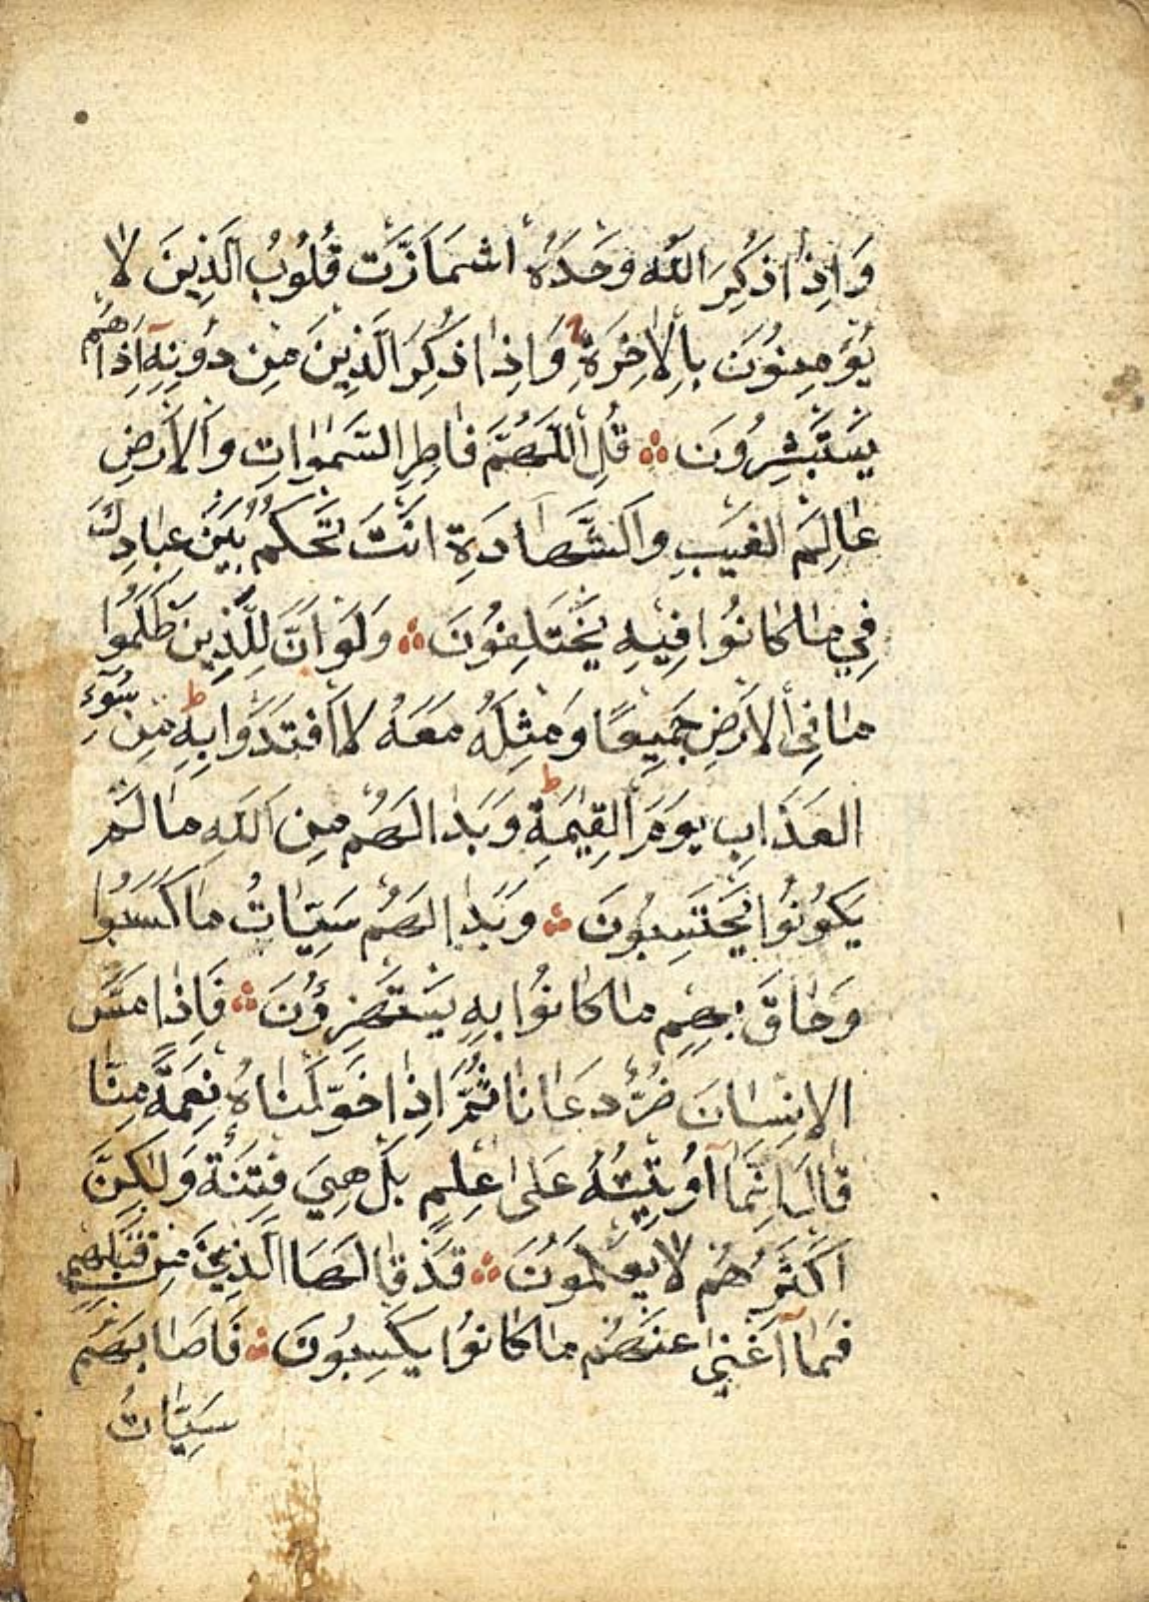 وَاِذَا ذُكِرَ اللّٰهُ وَحْدَهُ اشْمَاَزَّتْ قُلُوبُ الَّذِينَ لَا
يُؤْمِنُونَ بِالْاٰخِرَةِ وَاِذَا ذُكِرَ الَّذِينَ مِنْ دُونِهِٓ اِذَا هُمْ
يَسْتَبْشِرُونَ ۞ قُلِ اللّٰهُمَّ فَاطِرَ السَّمٰوَاتِ وَالْاَرْضِ
عَالِمَ الْغَيْبِ وَالشَّهَادَةِ اَنْتَ تَحْكُمُ بَيْنَ عِبَادِكَ
فِي مَا كَانُوا فِيهِ يَخْتَلِفُونَ ۞ وَلَوْ اَنَّ لِلَّذِينَ ظَلَمُوا
مَا فِي الْاَرْضِ جَمِيعًا وَمِثْلَهُ مَعَهُ لَافْتَدَوْا بِهِ ط مِنْ سُوٓءِ
الْعَذَابِ يَوْمَ الْقِيٰمَةِ ط وَبَدَا لَهُمْ مِنَ اللّٰهِ مَا لَمْ
يَكُونُوا يَحْتَسِبُونَ ۞ وَبَدَا لَهُمْ سَيِّاٰتُ مَا كَسَبُوا
وَحَاقَ بِهِمْ مَا كَانُوا بِهِ يَسْتَهْزِؤُنَ ۞ فَاِذَا مَسَّ
الْاِنْسَانَ ضُرٌّ دَعَانَا ثُمَّ اِذَا خَوَّلْنَاهُ نِعْمَةً مِنَّا
قَالَ اِنَّمَٓا اُوتِيتُهُ عَلٰى عِلْمٍ بَلْ هِيَ فِتْنَةٌ وَلٰكِنَّ
اَكْثَرَهُمْ لَا يَعْلَمُونَ ۞ قَدْ قَالَهَا الَّذِينَ مِنْ قَبْلِهِمْ
فَمَٓا اَغْنٰى عَنْهُمْ مَا كَانُوا يَكْسِبُونَ ۞ فَاَصَابَهُمْ
سَيِّاٰتُ